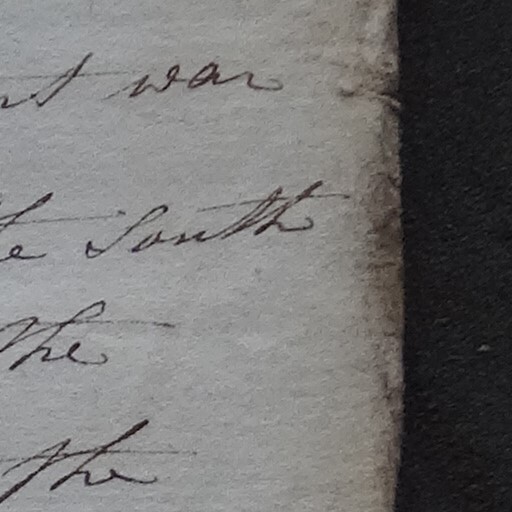 war
the South
the
the